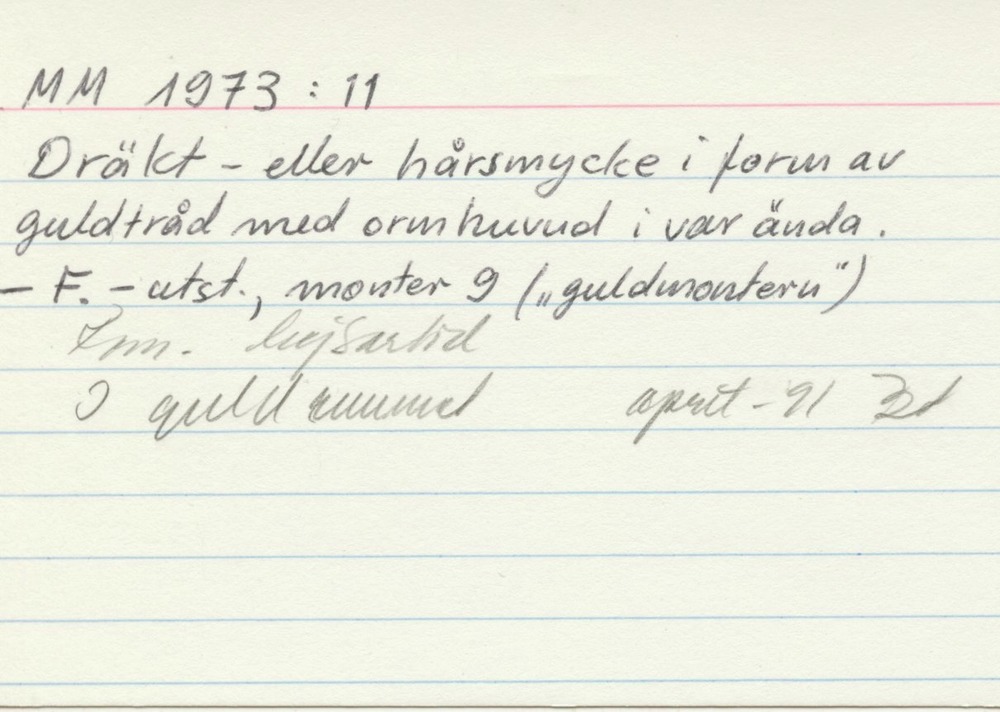 MM 1973 : 11
Dräkt - eller hårsmycke i form av
guldtråd med ormhuvud i var ända.
- F. - utst., monter 9 („guldmontern")
Rom. kejsartid
I guldrummet april - 91